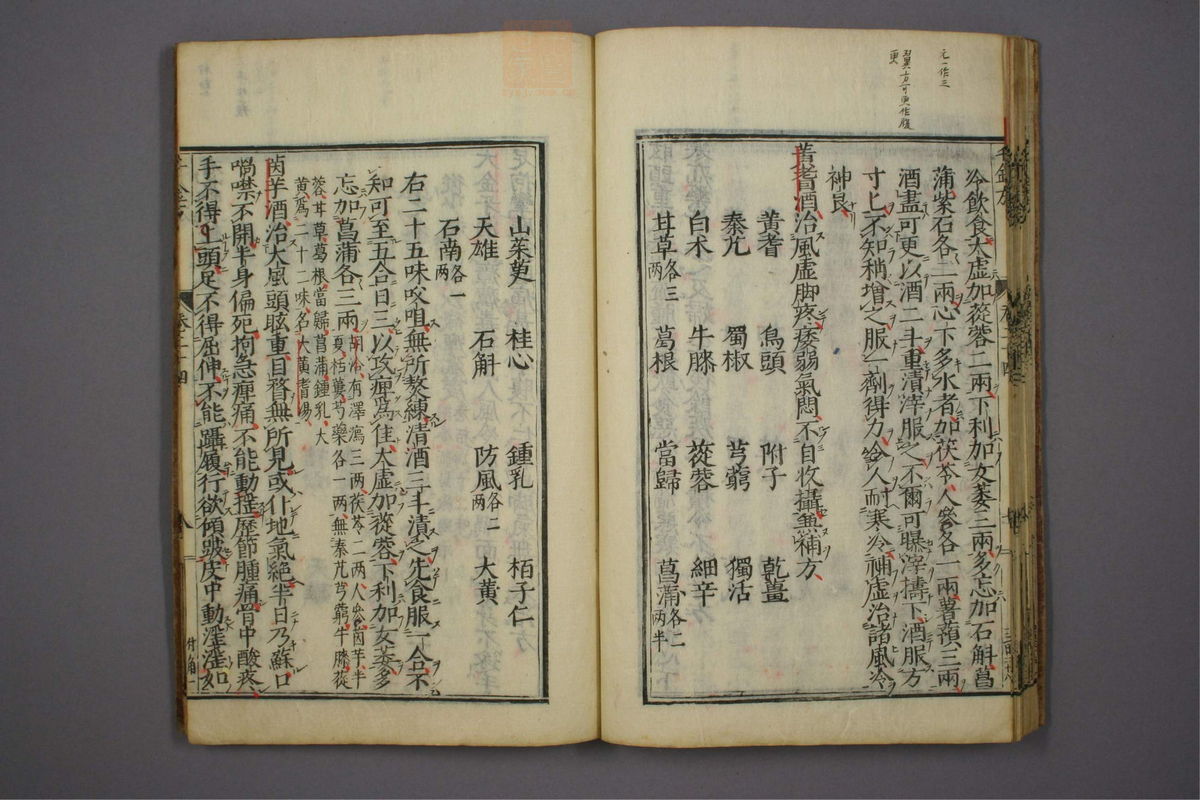 元一作三
翼方可更作腹
更
冷飲食大虛加蓯蓉二兩下利加女萎三兩多忘加石斛菖
蒲紫石各二兩心下多水者加茯苓人參各一兩薯蕷三兩
酒盡可更以酒二斗重漬滓服之不爾可曝滓擣下酒服方
寸匕不知稍增之服一劑得力令人耐寒冷補虛治諸風冷
神良
黃耆酒治風虛脚疼痿弱氣悶不自收攝兼補方
黃耆 烏頭 附子 乾薑
秦艽 蜀椒 芎藭 獨活
白朮 牛膝 蓯蓉 細辛
甘草各三兩 葛根 當歸 菖蒲各二兩半
山茱萸 桂心 鍾乳 栢子仁
天雄 石斛 防風各二兩 大黃
石南各一兩
右二十五味㕮咀無所熬練清酒三斗漬之先食服一合不
知可至五合日三以攻痺爲佳大虛加蓯蓉下利加女萎多
忘加菖蒲各三兩
胡洽有澤瀉三兩茯苓二兩人參茵芋半
夏栝蔞芍藥各一兩無秦艽芎藭牛膝蓯
蓉甘草葛根當歸菖蒲鍾乳大
黃爲二十二味名大黃耆湯
茵芋酒治大風頭眩重目瞀無所見或仆地氣絕半日乃蘇口
喎噤不開半身偏死拘急痺痛不能動搖歷節腫痛骨中酸疼
手不得上頭足不得屈伸不能躡履行欲傾跛皮中動淫淫如